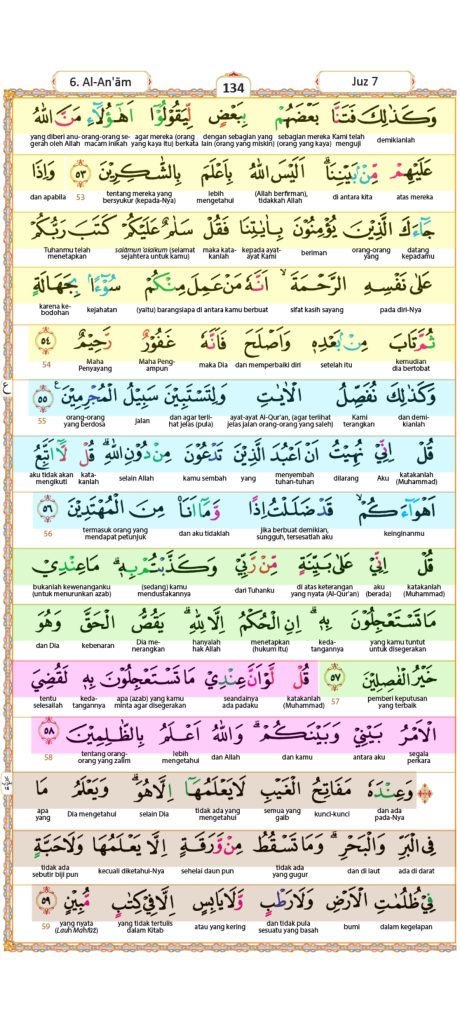 6. Al-An'ām
134
Juz 7
وَكَذٰلِكَ فَتَنَّا بَعْضَهُمْ بِبَعْضٍ لِّيَقُوْلُوْٓا اَهٰٓؤُلَاۤءِ مَنَّ اللّٰهُ
demikianlah Kami telah menguji sebahagian mereka (orang kaya) dengan sebagian yang lain (orang yang miskin) agar mereka (orang yang kaya itu) berkata orang-orang semacam inikah yang diberi anugerah oleh Allah
عَلَيْهِمْ مِّنْۢ بَيْنِنَاۗ اَلَيْسَ اللّٰهُ بِاَعْلَمَ بِالشّٰكِرِيْنَ ٥٣ وَاِذَا
atas mereka di antara kita (Allah berfirman), tidakkah Allah lebih mengetahui tentang mereka yang bersyukur (kepada-Nya) 53 dan apabila
جَاۤءَكَ الَّذِيْنَ يُؤْمِنُوْنَ بِاٰيٰتِنَا فَقُلْ سَلٰمٌ عَلَيْكُمْ كَتَبَ رَبُّكُمْ
datang kepadamu orang-orang yang beriman kepada ayat-ayat Kami maka katakanlah salāmun 'alaikum (selamat sejahtera untuk kamu) Tuhanmu telah menetapkan
عَلٰى نَفْسِهِ الرَّحْمَةَۙ اَنَّهٗ مَنْ عَمِلَ مِنْكُمْ سُوْۤءًاۢ بِجَهَالَةٍ
pada diri-Nya sifat kasih sayang (yaitu) barangsiapa di antara kamu berbuat kejahatan karena kebodohan
ثُمَّ تَابَ مِنْۢ بَعْدِهٖ وَاَصْلَحَ فَاَنَّهٗ غَفُوْرٌ رَّحِيْمٌ ٥٤
kemudian dia bertobat setelah itu dan memperbaiki diri maka Dia Maha Pengampun Maha Penyayang 54
ع
وَكَذٰلِكَ نُفَصِّلُ الْاٰيٰتِ وَلِتَسْتَبِيْنَ سَبِيْلُ الْمُجْرِمِيْنَ ࣖ ٥٥
dan demikianlah Kami terangkan ayat-ayat Al-Qur'an, (agar terlihat jelas jalan orang-orang yang saleh) dan agar terlihat jelas (pula) jalan orang-orang yang berdosa 55
قُلْ اِنِّيْ نُهِيْتُ اَنْ اَعْبُدَ الَّذِيْنَ تَدْعُوْنَ مِنْ دُوْنِ اللّٰهِ ۗ قُلْ لَّآ اَتَّبِعُ
katakanlah (Muhammad) Aku dilarang menyembah tuhan-tuhan yang kamu sembah selain Allah katakanlah aku tidak akan mengikuti
اَهْوَاۤءَكُمْۙ قَدْ ضَلَلْتُ اِذًا وَّمَآ اَنَا۠ مِنَ الْمُهْتَدِيْنَ ٥٦
keinginanmu jika berbuat demikian, sungguh, tersesatlah aku dan aku tidaklah termasuk orang yang mendapat petunjuk 56
قُلْ اِنِّيْ عَلٰى بَيِّنَةٍ مِّنْ رَّبِّيْ وَكَذَّبْتُمْ بِهٖۗ مَا عِنْدِيْ
katakanlah (Muhammad) aku (berada) di atas keterangan yang nyata (Al-Qur'an) dari Tuhanku (sedang) kamu mendustakannya bukanlah kewenanganku (untuk menurunkan azab)
مَا تَسْتَعْجِلُوْنَ بِهٖۗ اِنِ الْحُكْمُ اِلَّا لِلّٰهِ ۗ يَقُصُّ الْحَقَّ وَهُوَ
yang kamu tuntut untuk disegerakan kedatangannya menetapkan (hukum itu) hanyalah hak Allah Dia menerangkan kebenaran dan Dia
خَيْرُ الْفٰصِلِيْنَ ٥٧ قُلْ لَّوْ اَنَّ عِنْدِيْ مَا تَسْتَعْجِلُوْنَ بِهٖ لَقُضِيَ
pemberi keputusan yang terbaik 57 katakanlah (Muhammad) seandainya ada padaku apa (azab) yang kamu minta agar disegerakan kedatangannya tentu selesailah
الْاَمْرُ بَيْنِيْ وَبَيْنَكُمْ ۗ وَاللّٰهُ اَعْلَمُ بِالظّٰلِمِيْنَ ٥٨
segala perkara antara aku dan kamu dan Allah lebih mengetahui tentang orang-orang yang zalim 58
۞ وَعِنْدَهٗ مَفَاتِحُ الْغَيْبِ لَا يَعْلَمُهَآ اِلَّا هُوَۗ وَيَعْلَمُ مَا
dan ada pada-Nya kunci-kunci semua yang gaib tidak ada yang mengetahui selain Dia Dia mengetahui apa yang
فِى الْبَرِّ وَالْبَحْرِۗ وَمَا تَسْقُطُ مِنْ وَّرَقَةٍ اِلَّا يَعْلَمُهَا وَلَا حَبَّةٍ
ada di darat dan di laut tidak ada yang gugur sehelai daun pun kecuali diketahui-Nya tidak ada sebutir biji pun
فِيْ ظُلُمٰتِ الْاَرْضِ وَلَا رَطْبٍ وَّلَا يَابِسٍ اِلَّا فِيْ كِتٰبٍ مُّبِيْنٍ ٥٩
dalam kegelapan bumi dan tidak pula sesuatu yang basah atau yang kering yang tidak tertulis dalam Kitab yang nyata (Lauh Mahfūẓ) 59